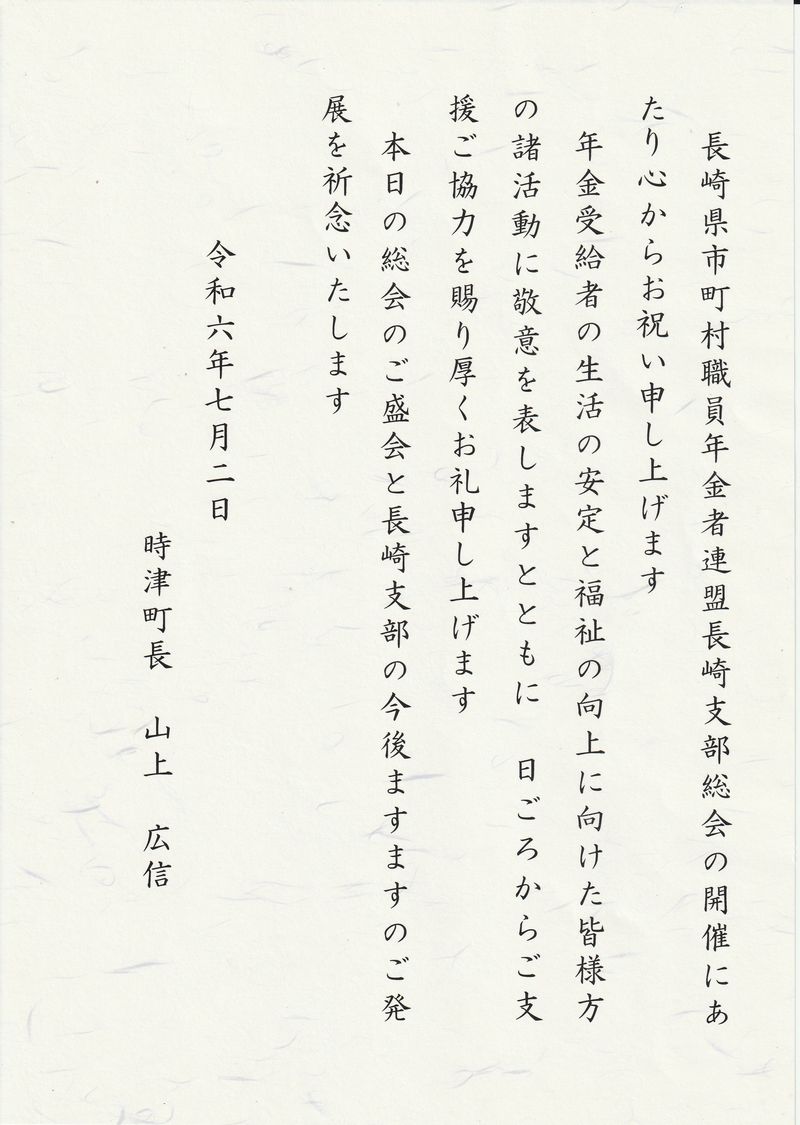 長崎県市町村職員年金者連盟長崎支部総会の開催にあ
たり心からお祝い申し上げます
年金受給者の生活の安定と福祉の向上に向けた皆様方
の諸活動に敬意を表しますとともに　日ごろからご支
援ご協力を賜り厚くお礼申し上げます
本日の総会のご盛会と長崎支部の今後ますますのご発
展を祈念いたします
令和六年七月二日
時津町長　山上　広信